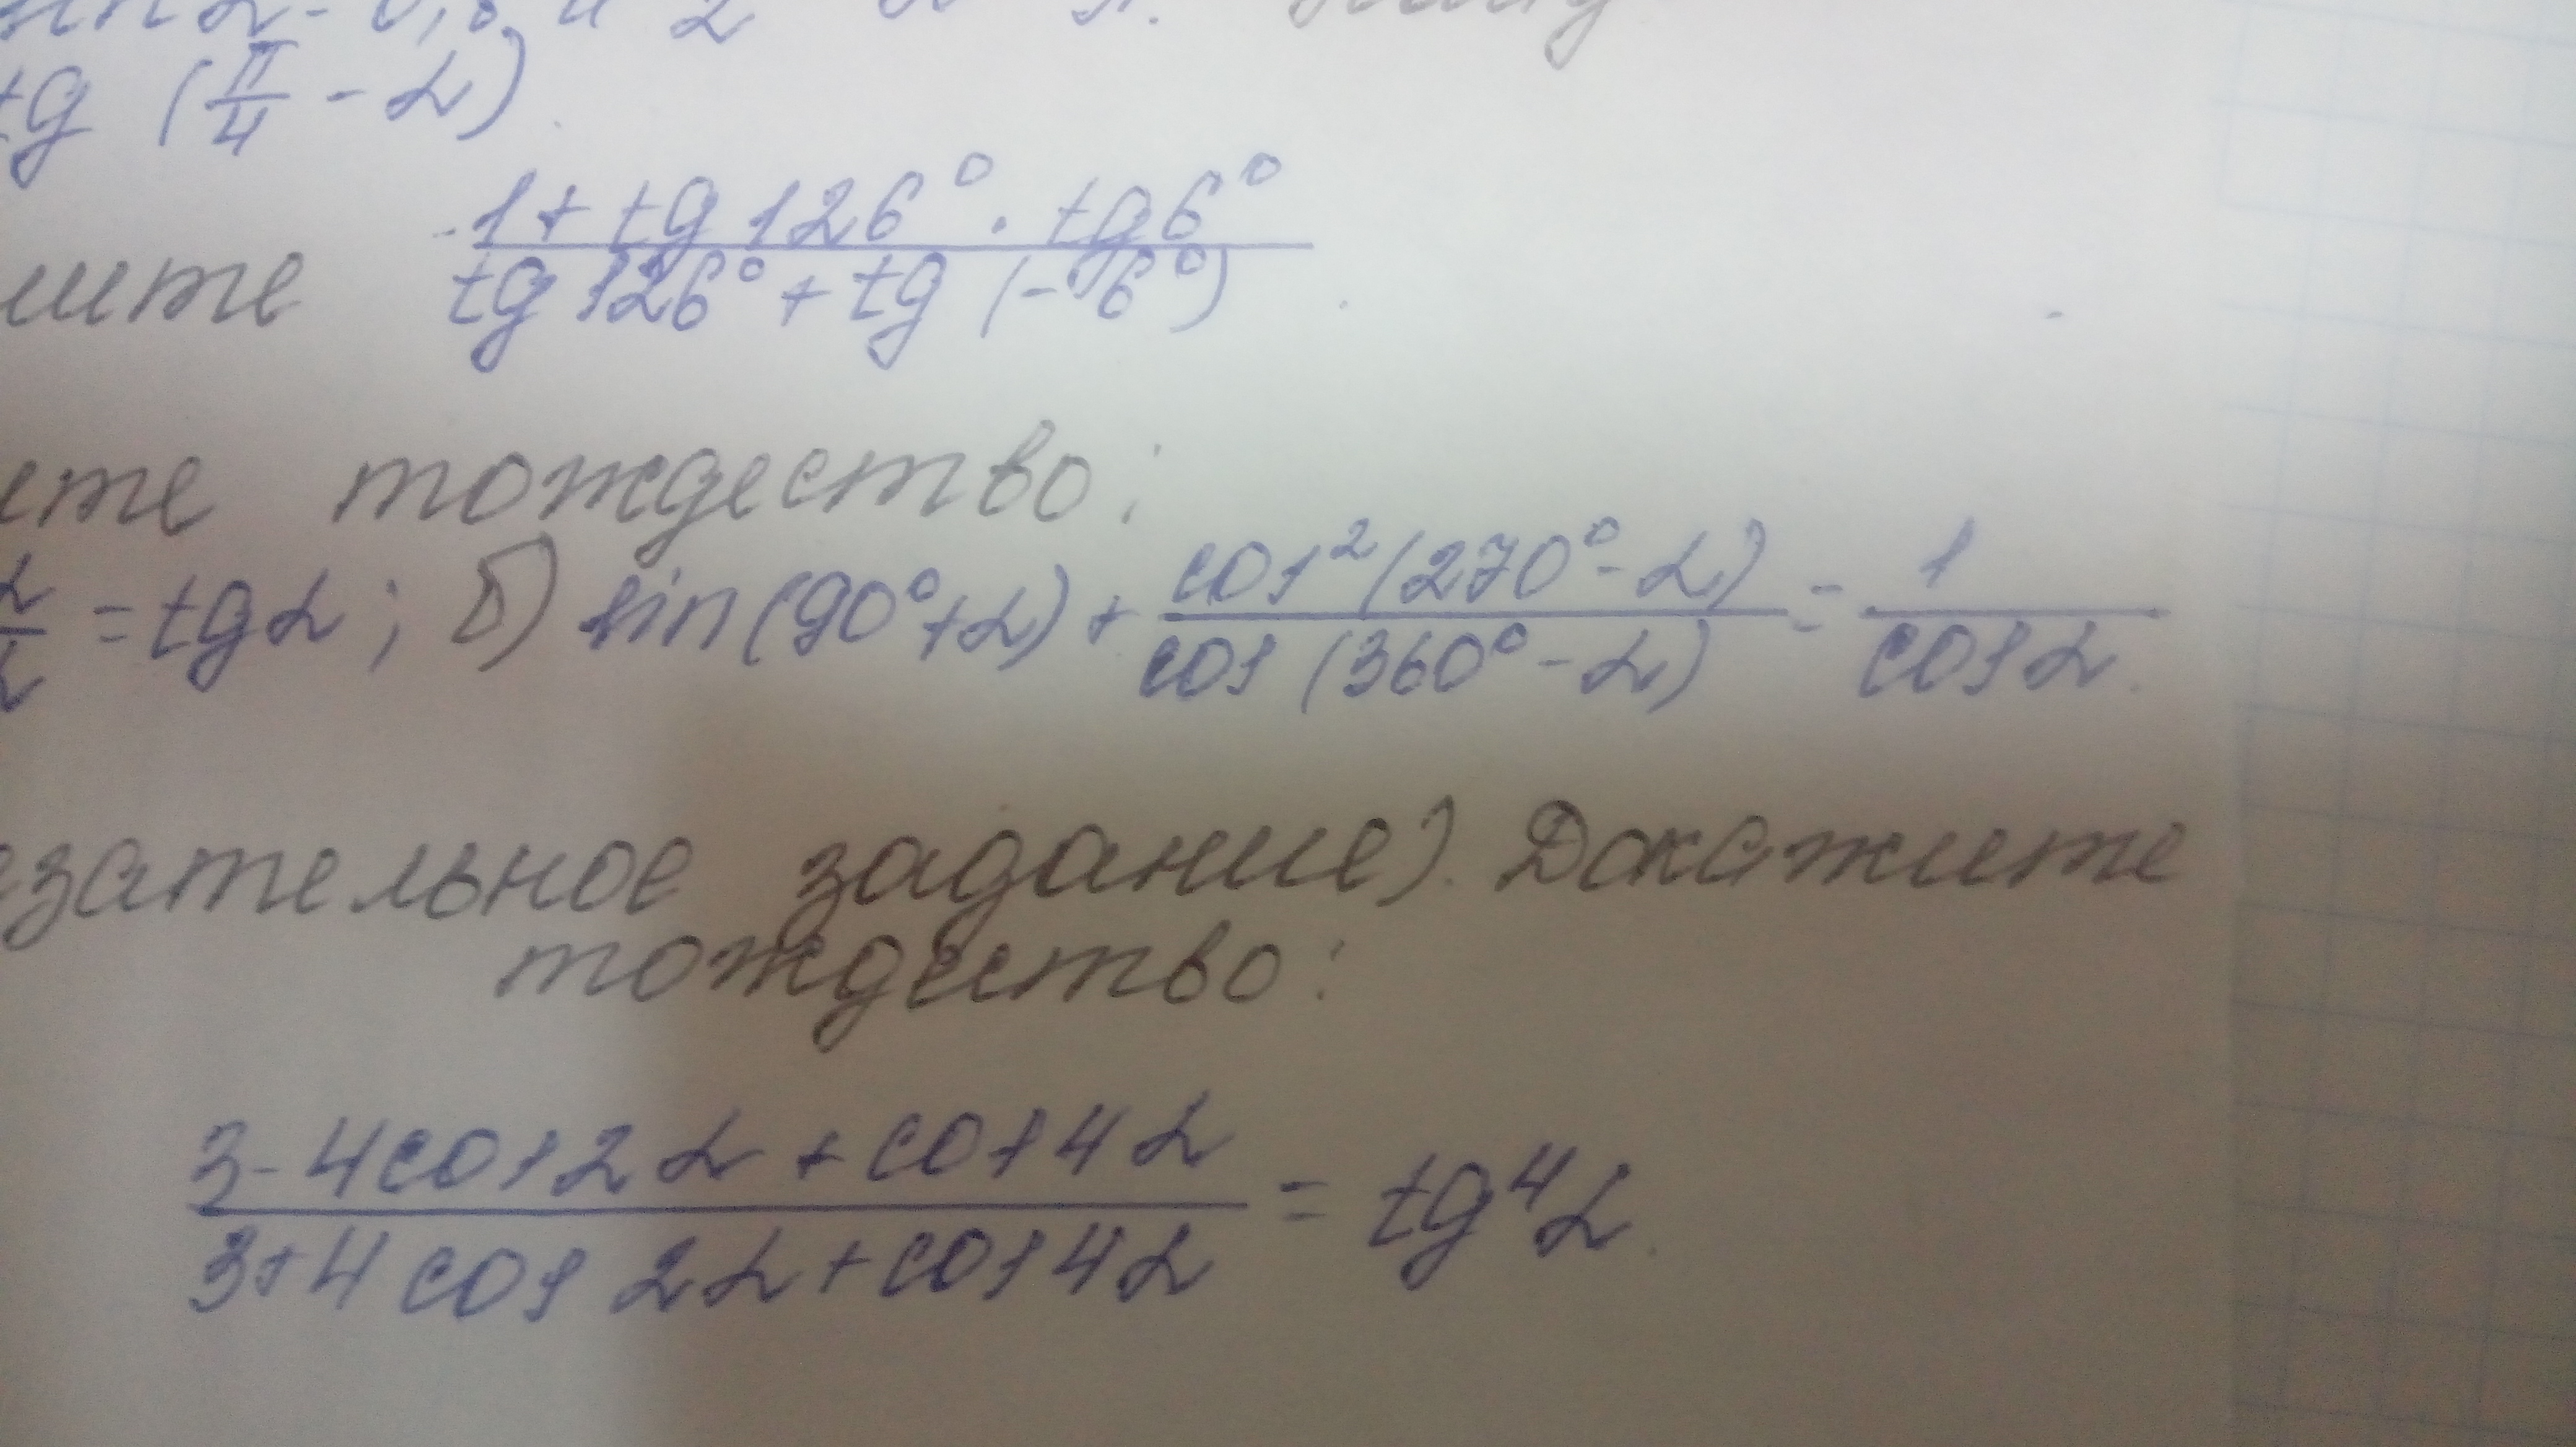 tg (π/4 - α)
1 + tg 126° · tg 6°
tg 126° + tg (-6°)
ите тождество:
= tg α; б) sin(90°+α) + cos²(270°-α) / cos(360°-α) = 1 / cos α.
зательное задание). Докажите
тождество:
3-4cos2α + cos4α
3+4cos2α + cos4α
= tg⁴α.